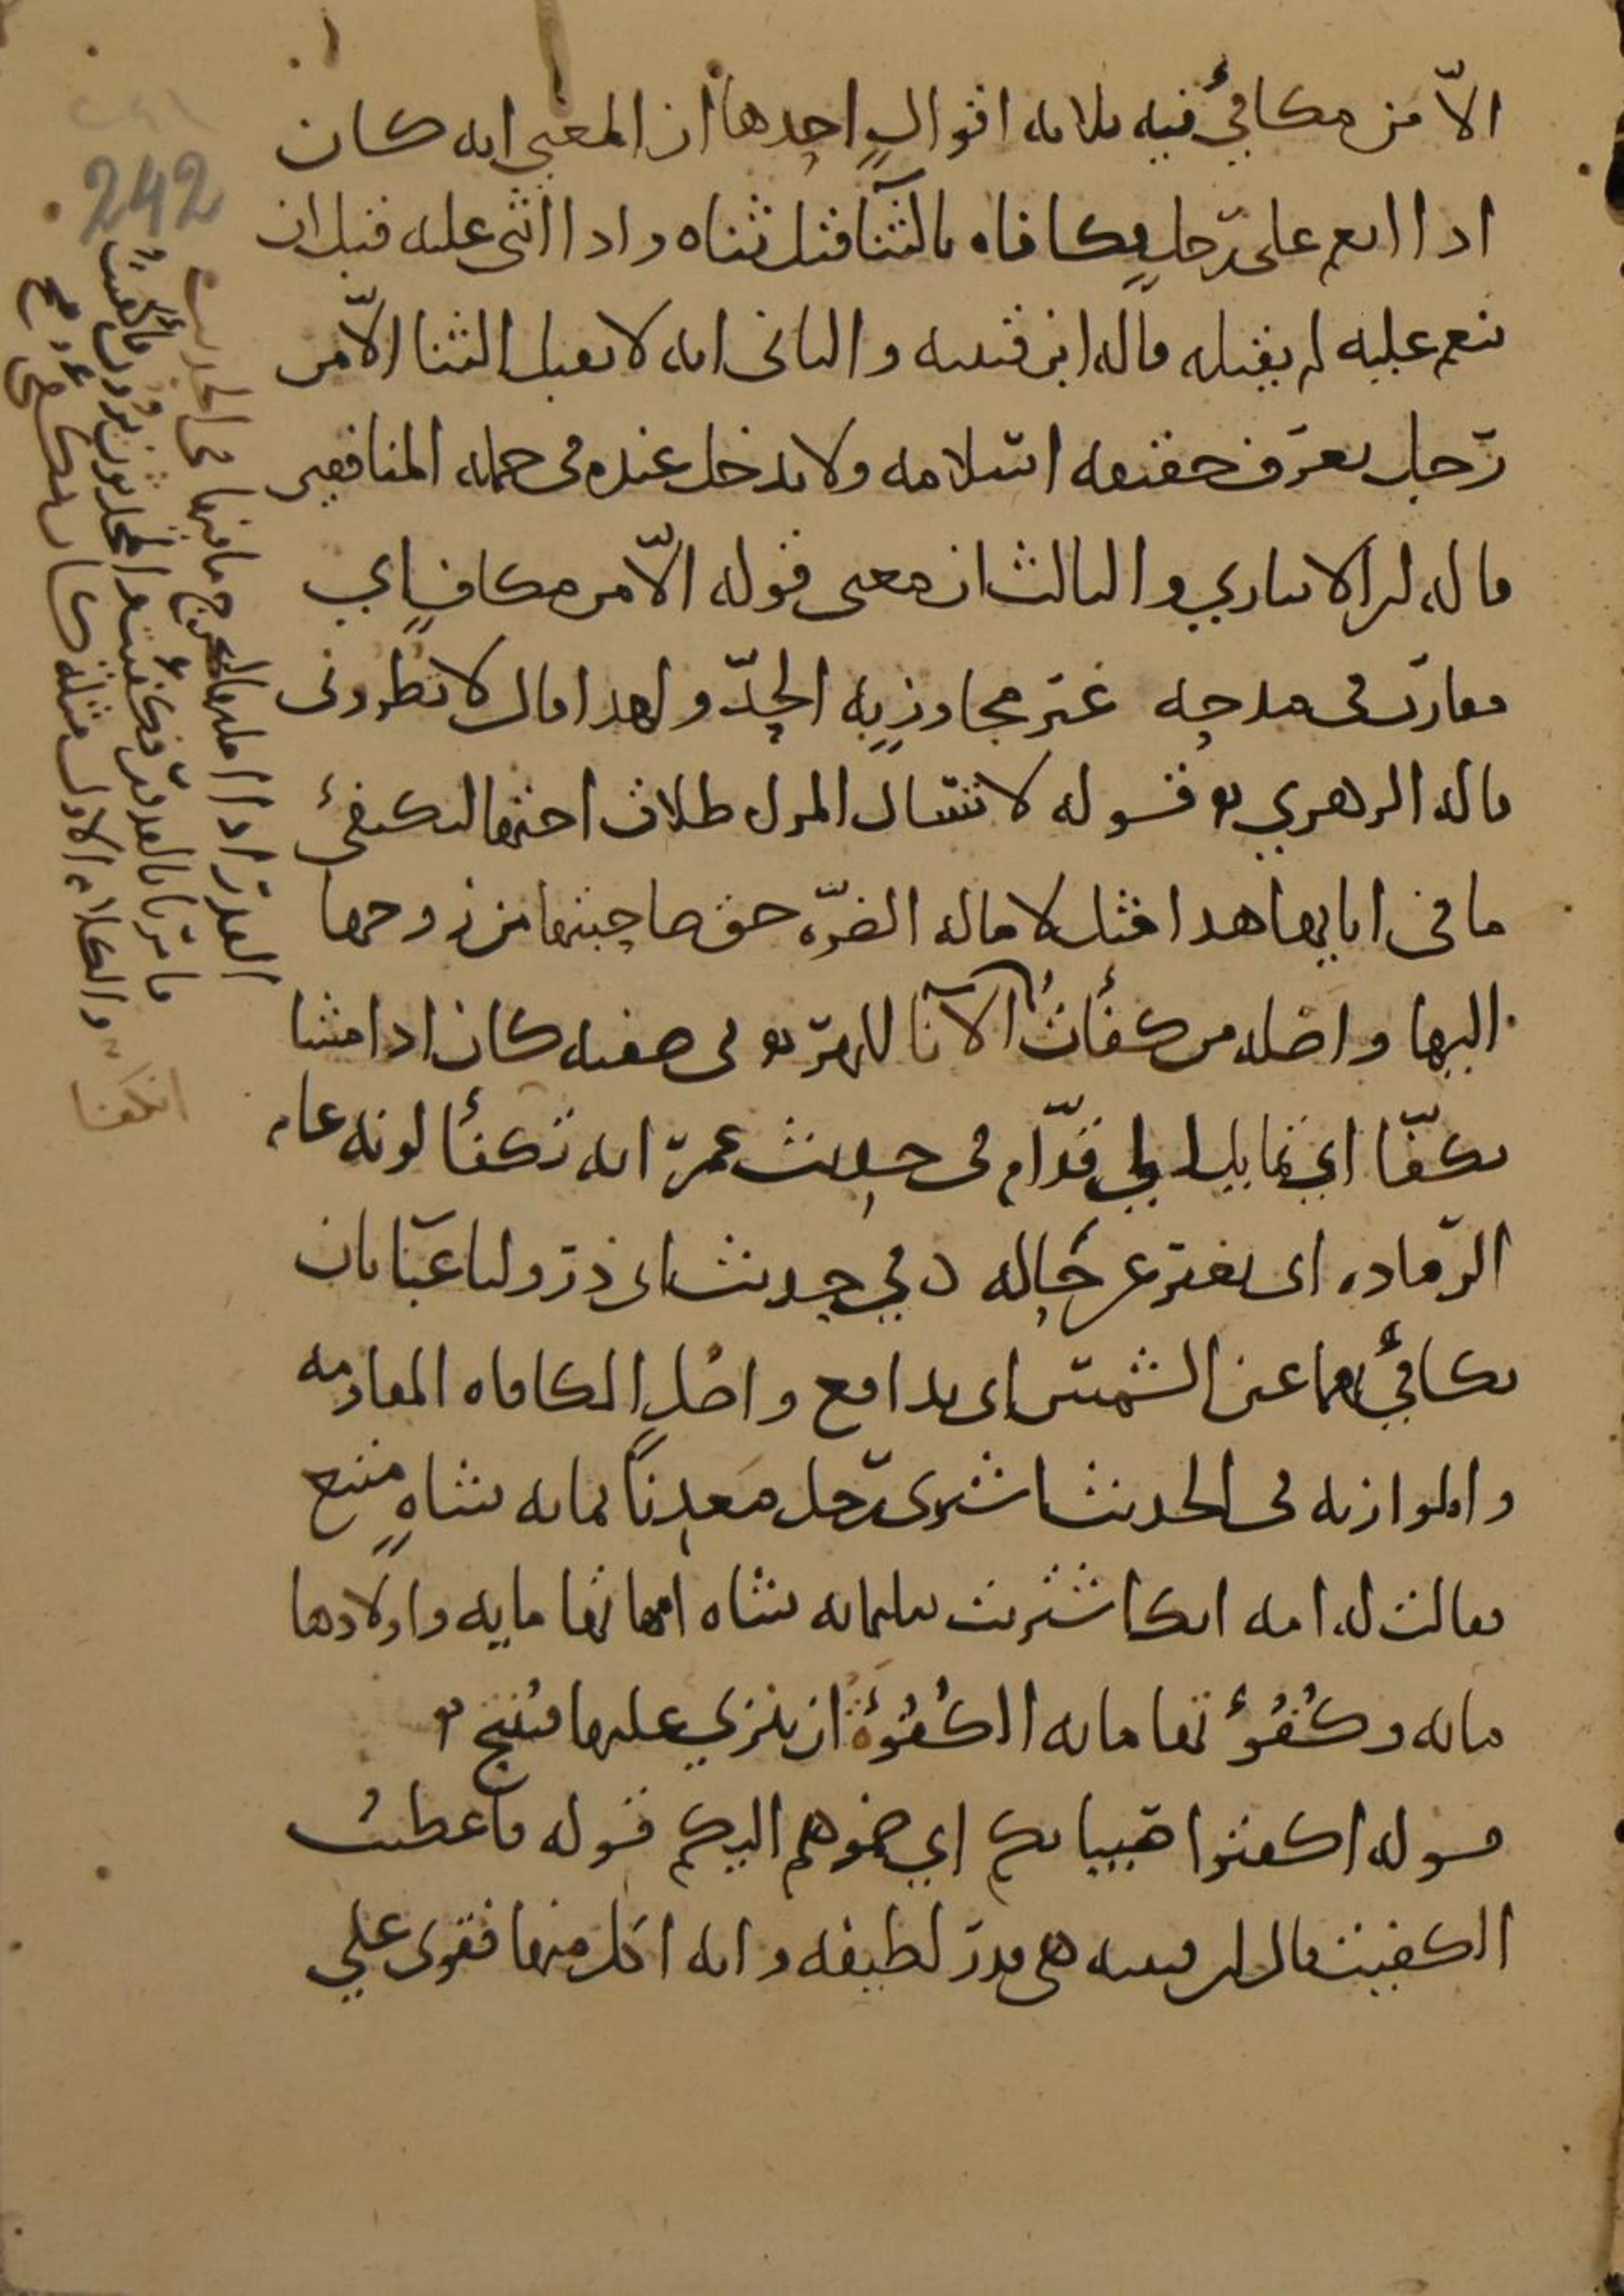 الّا من مكافئ فيه ثلاثة اقوالٍ احدها ان المعنى انه كان
اذا انعم على رجلٍ فكافاه بالثنا قبل ثناه واذا اثنى عليه قبل ان
ينعم عليه لم يقبله قاله ابن قتيبه والثانى انه لا يقبل الثنا الّا من
رجل يعرف حقيقه اسلامه ولا يدخل عنده فى جمله المنافقين
قاله ابن الانباري والثالث ان معنى قوله الّا من مكافٍ اي
مقارب فى مدحه غير مجاوزٍ به الحدّ ولهذا قال لا تطرونى
قاله الازهري قوله لا تسال المراه طلاق اختها لتكفئ
ما فى انايها هذا مثل لاماله الضرّه حق صاحبتها من زوجها
اليها واصله من كفأتُ الانا للهروى فى صفته كان اذا مشا
تكفّا اي تمايل الى قدّام فى حديث عمر انه تكفأ لونه عام
الرّماده اى تغير عن حاله وفي حديث ابى ذر ولنا عبَاتان
نكافئ بهما عين الشمس اى ندافع واصل المكافاه المقاومه
والموازنه فى الحديث اشترى رجل معدِنًا بمايه شاهٍ متبع
فقالت له امه انك اشتريت بثلثمايه شاه امهاتها مايه واولادها
مايه وكُفُؤتها مايه الكُفُؤَة ان ينزي عليها فتنتج
قوله اكفئوا صبيانكم اي ضموهم اليكم قوله فاعطيتُ
الكفيت قال ابن قتيبه هى قدر لطيفه وانه اكل منها فقوى على
فى الحديث
القدر اذا املتها ليخرج ما فيها
ما مرّ بنا بالقدور فكفئت
والكلام الاول مثله
انكفا
242